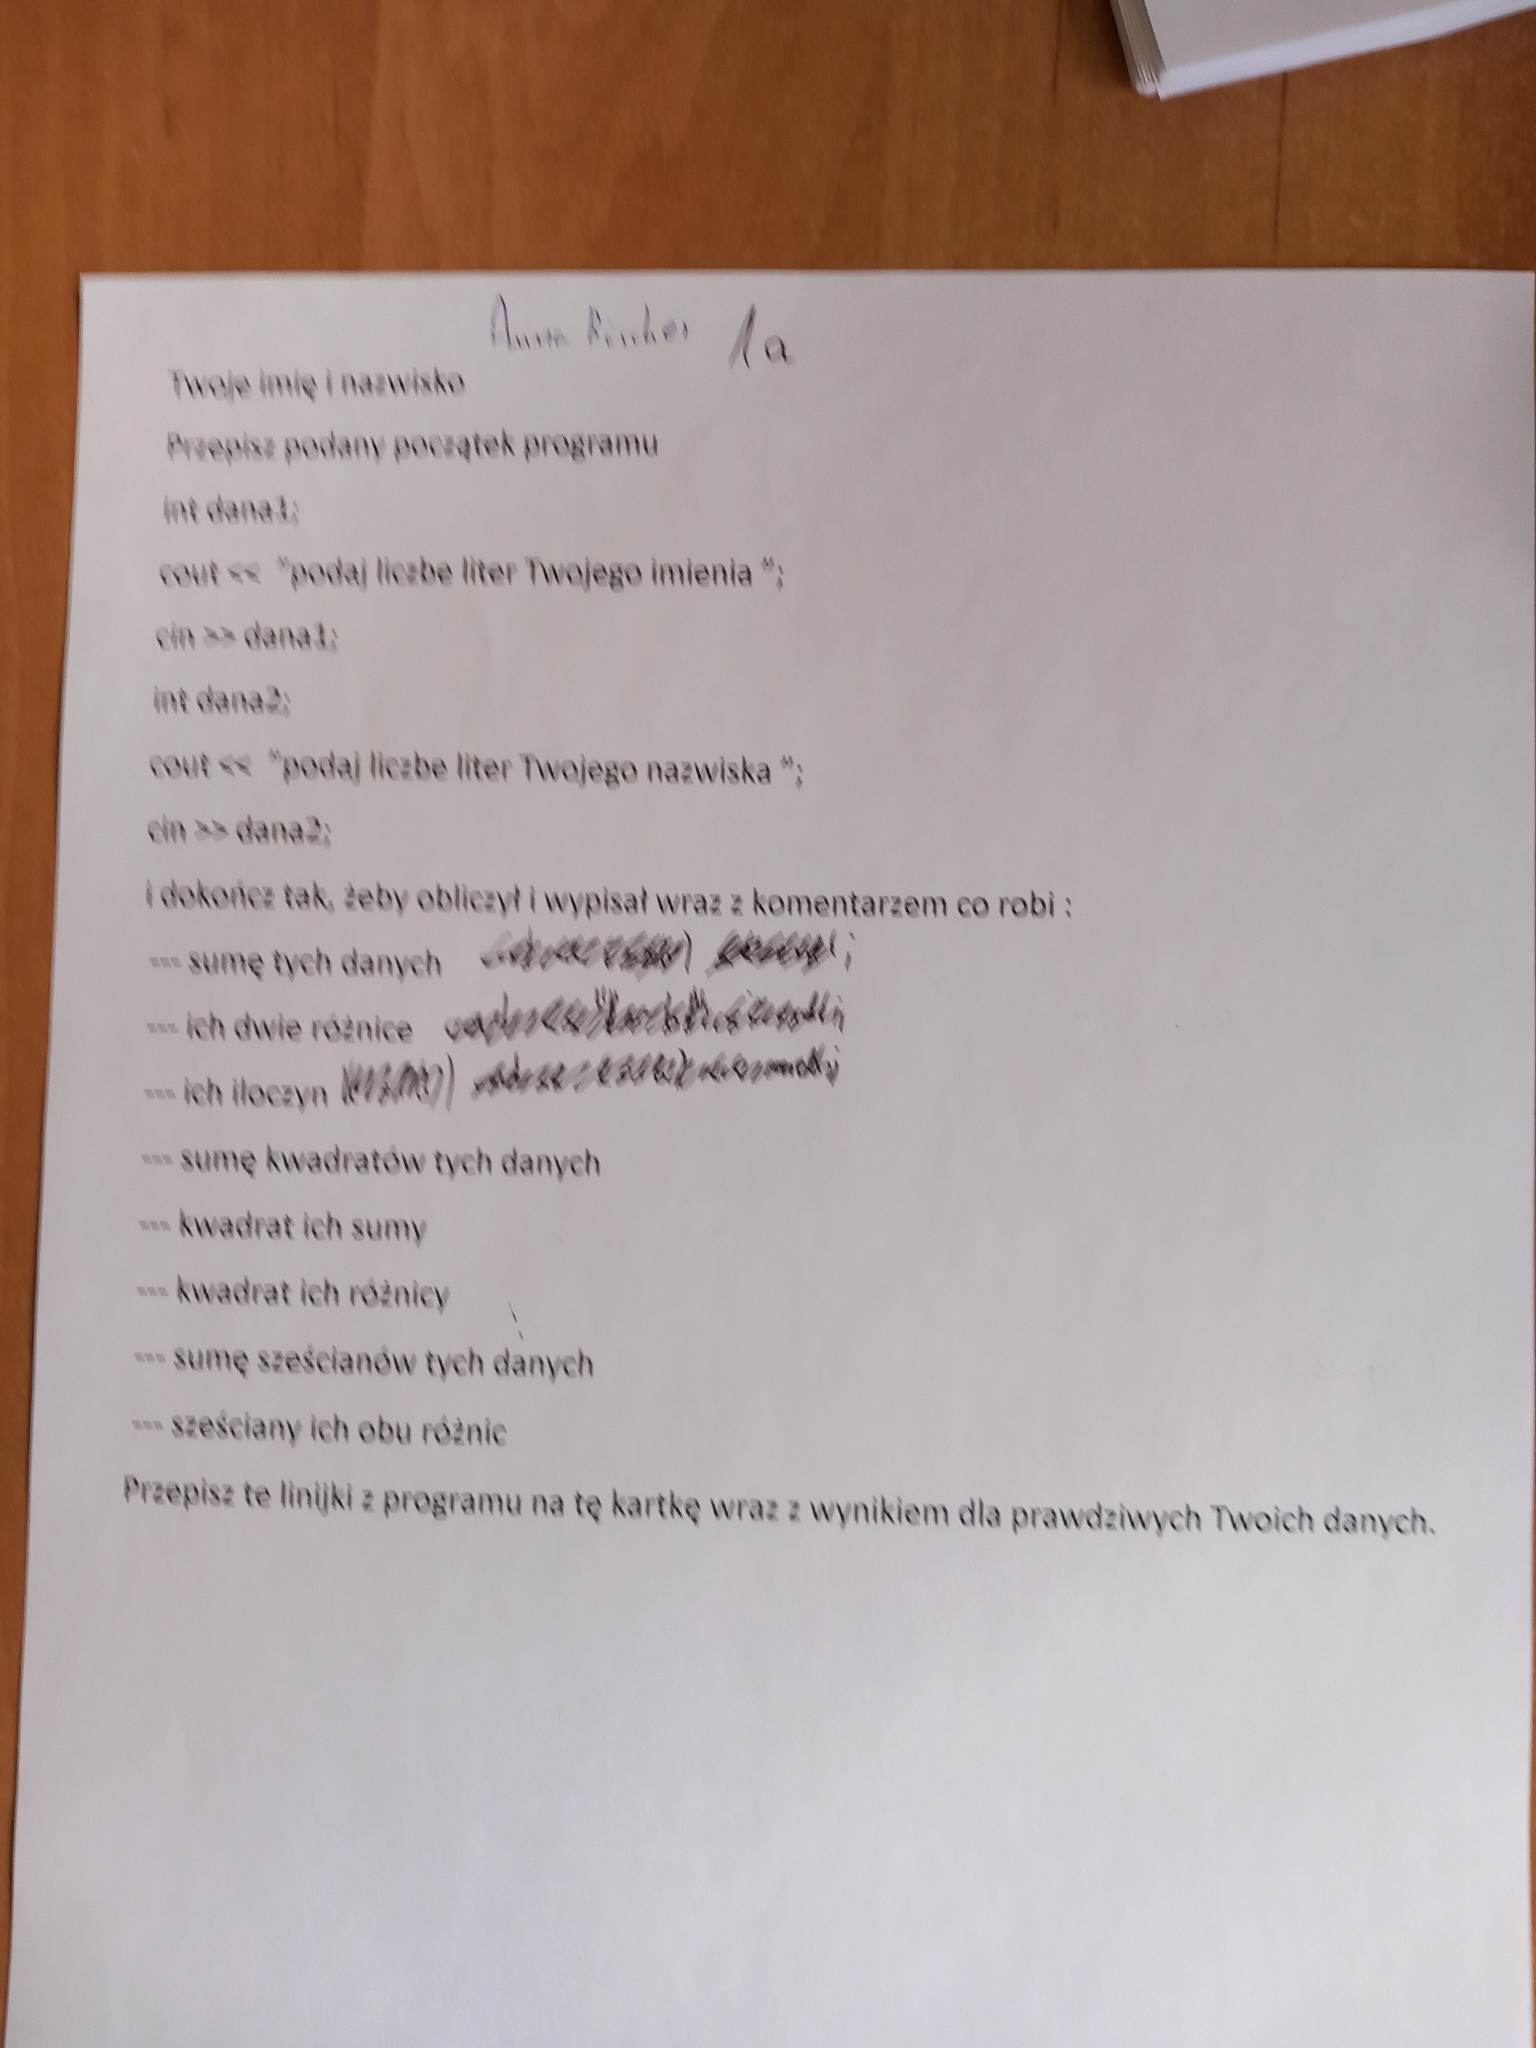 1a
Twoje imię i nazwisko
Przepisz podany początek programu
int dana1;
cout << "podaj liczbe liter Twojego imienia ";
cin >> dana1;
int dana2;
cout << "podaj liczbe liter Twojego nazwiska ";
cin >> dana2;
i dokończ tak, żeby obliczył i wypisał wraz z komentarzem co robi :
--- sumę tych danych
--- ich dwie różnice
--- ich iloczyn
--- sumę kwadratów tych danych
--- kwadrat ich sumy
--- kwadrat ich różnicy
--- sumę sześcianów tych danych
--- sześciany ich obu różnic
Przepisz te linijki z programu na tę kartkę wraz z wynikiem dla prawdziwych Twoich danych.